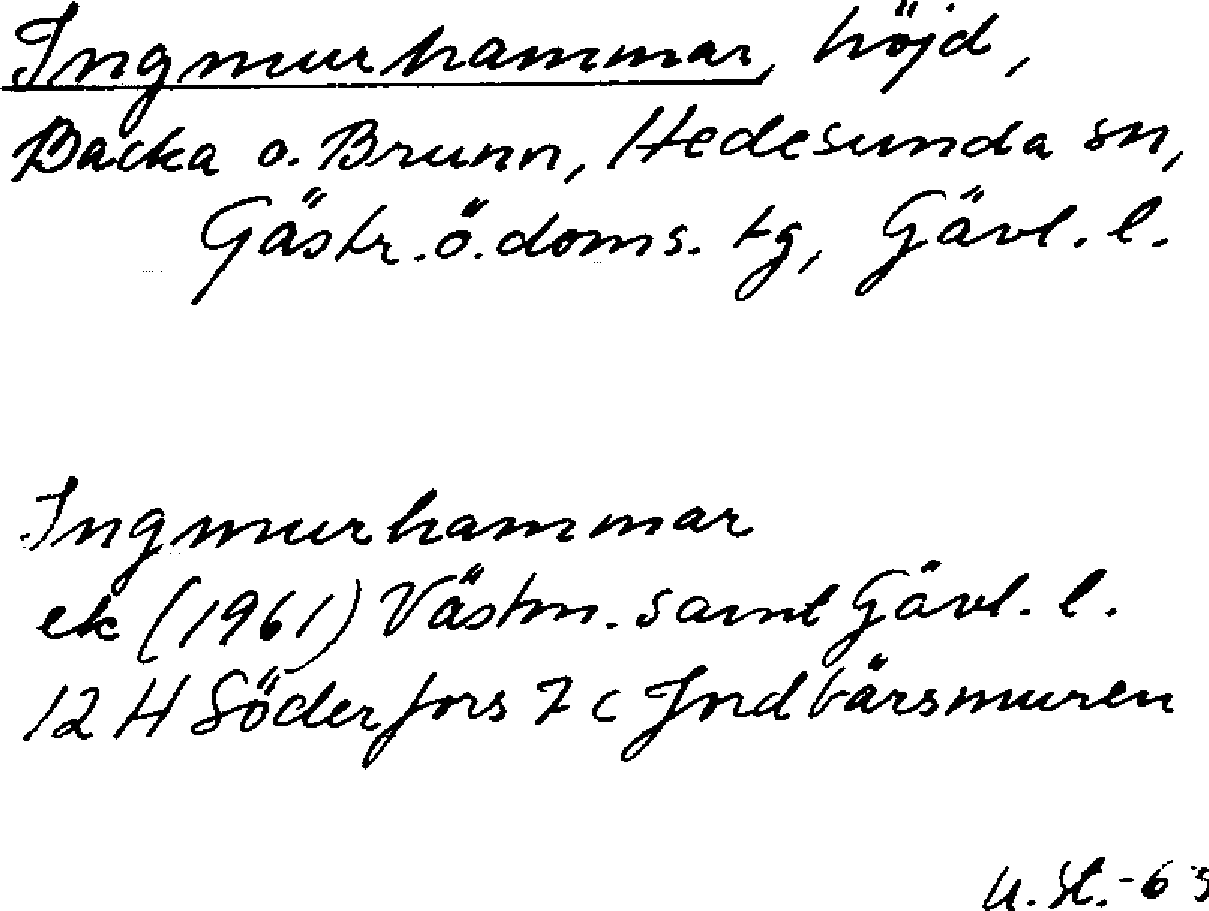 Ingmurhammar, höjd,
Backa o. Brunn, Hedesunda sn,
Gästr. ö. doms. tg, Gävl. l.
Ingmurhammar
ek (1961) Västm. samt Gävl. l.
12 H Söderfors 7 c Jordbärsmuren
U. St. -63